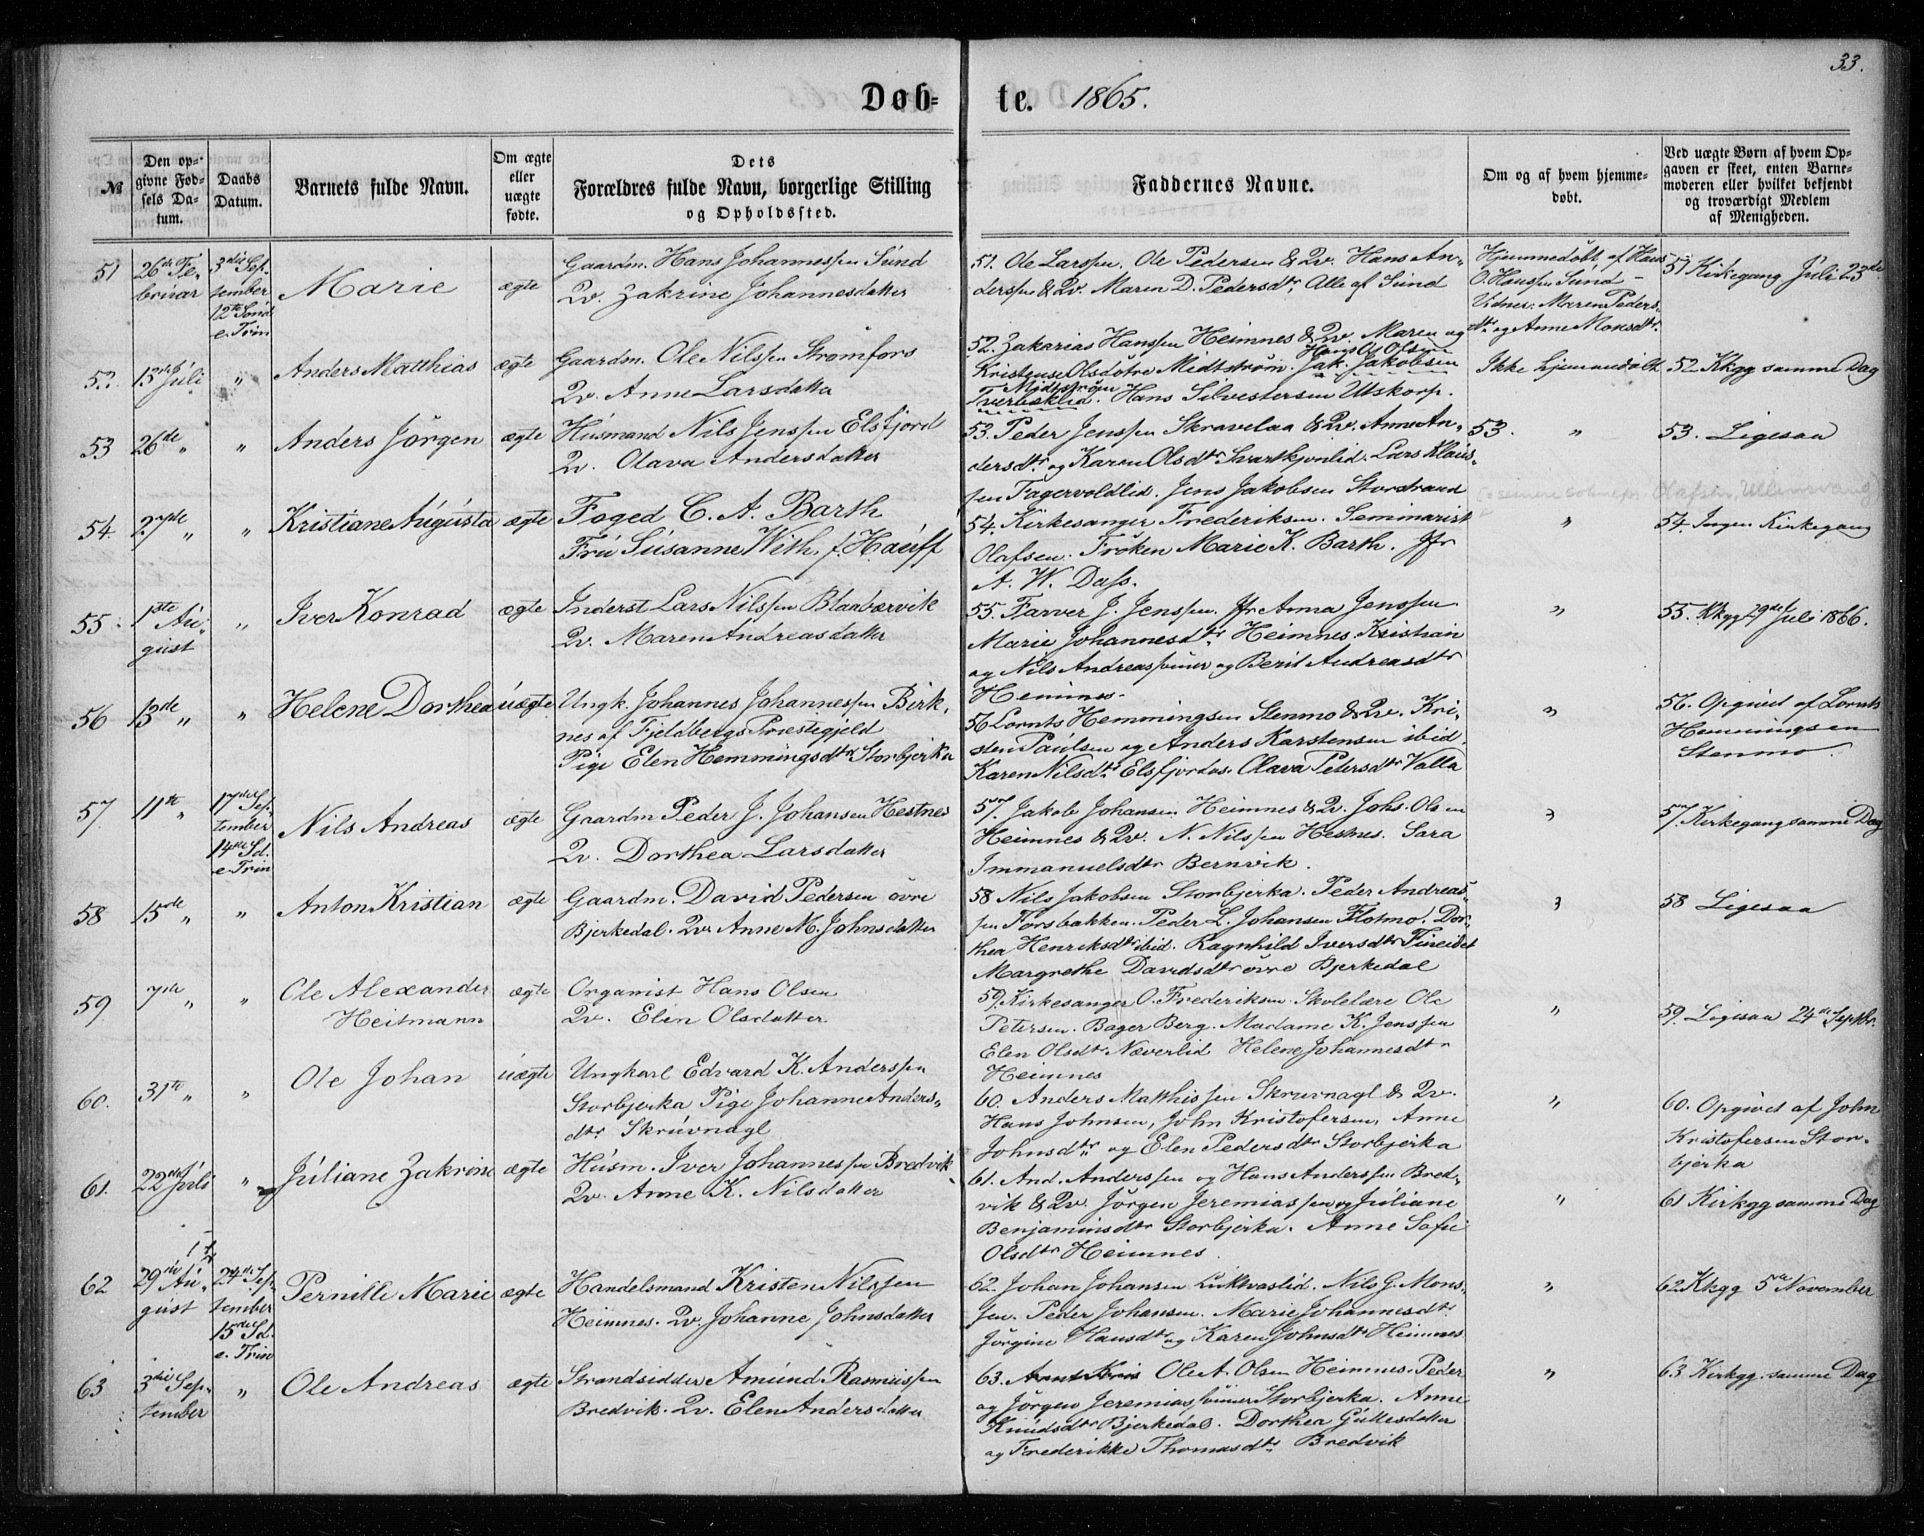 33.
Döb-
te. 1865.
№
Den op-
givne Föd-
sels Da-
tum.
Daabs
Datum.
Barnets fulde Navn.
Om ægte
eller
uægte
födte.
Dets
Forældres fulde Navn, borgerlige Stilling
og Opholdssted.
Faddernes Navne.
Om og af hvem hjemme-
döbt.
Ved uægte Börn af hvem Op-
gaven er skeet, enten Barne-
moderen eller hvilket bekjendt
og troværdigt Medlem
af Menigheden.
51
26de Fe-
bruar
3die Sep-
tember
12te Sönd.
e. Trin
Marie
ægte
Gaardm. Hans Johannessen Sund
Qv. Zakrine Johannesdatter
51. Ole Larssen. Ole Pedersen & Qv. Hans An-
derssen & Qv. Maren D. Pedersdtr. Alle af Sund
Hjemmedöbt af Hans
O. Hanssen Sund
Vidner: Maren Peders-
dtr. og Anne Monsdtr.
51 Kirkegang Juli 23de
52.
13de Juli
"
Anders Matthias
ægte
Gaardm. Ole Nilssen Strömfors
Qv. Anne Larsdatter
52. Zakarias Hanssen Heimnes & Qv. Maren og
Kristense Olsdötre Midtström. Jak. Jakobsen
Hans O. Olsen
Midtström
Tverbæklid. Hans Silvestersen Utskarp.
Ikke hjemmedöbt
52 Kkgg samme Dag
53
26de "
"
Anders Jörgen
ægte
Husmand Nils Jenssen Elsfjord
Qv. Olava Andersdatter
53. Peder Jenssen Skravelaa & Qv. Anne An-
dersdtr. og Karen Olsdtr Svartkjönlid. Lars Klaus-
sen Fagervoldlid. Jens Jakobsen Storstrand
53. "
53. Ligesaa
54
27de "
"
Kristiane Augusta
ægte
Foged C. A. Barth
Fru Susanne With. f. Hauff
54. Kirkesanger Frederiksen. Seminarist
Olafsen. Fröken Marie K. Barth. Jfr
A. W. Dass.
"
Olafsen, Ullensvang
54. Ingen Kirkegang
55.
1ste Au-
gust
"
Iver Konrad
ægte
Inderst Lars Nilssen Blaabærvik
Qv. Maren Andreasdatter
55. Farver J. Jenssen. Jfr Anna Jenssen
Marie Johannesdtr Heimnes. Kristian
og Nils Andreassönner og Berit Andreasdtr
Heimnes.
"
55. Kkgg 29de Juli 1866.
56
13de "
"
Helene Dorthea
uægte
Ungk. Johannes Johannessen Birk-
nes af Fjeldbergs Præstegjeld
Pige Elen Hemmingsdtr Storbjerka
56 Lornts Hemmingsen Stenmo & Qv. Kri-
sten Paulsen og Anders Karstensen ibid.
Karen Nilsdtr Elsfjordos. Olava Petersdtr Valla
"
56. Opgivet af Lornts
Hemmingsen
Stenmo.
57.
11te "
17de Sep-
tember
14de Sd.
e. Trin
Nils Andreas
ægte
Gaardm Peder J. Johansen Hestnes
Qv. Dorthea Larsdatter
57. Jakob Johansen Heimnes & Qv. Johs. Olsen
Heimnes & Qv. N. Nilssen Hestnes. Sara
Immanuelsdtr Bernvik.
"
57. Kirkegang samme Dag
58
15de "
"
Anton Kristian
ægte
Gaardm. David Pedersen övre
Bjerkedal. Qv. Anne M. Johnsdatter
58 Nils Jakobsen Storbjerka. Peder Andreas-
sen Forsbakken. Peder L. Johansen Flotmo. Dor-
thea Henriksdtr ibid. Ragnhild Iversdtr Fineidet
Margrethe Davidsdtr övre Bjerkedal
"
58 Ligesaa
59
7de "
"
Ole Alexander
Heitmann
ægte
Organist Hans Olsen
Qv. Elen Olsdatter
59. Kirkesanger O. Frederiksen. Skolelære Ole
Petersen. Bager Berg. Madame K. Jenssen
Elen Olsdtr Næverlid Helene Johannesdtr
Heimnes
"
59. Ligesaa 24de Septbr.
60.
31te "
"
Ole Johan
uægte
Ungkarl Edvard K. Anderssen
Storbjerka Pige Johanne Anders-
dtr. Skruvnagl
60. Anders Matthissen Skruvnagl & Qv.
Hans Johnsen, John Kristofersen, Anne
Johnsdtr og Elen Pedersdtr Storbjerka
"
60. Opgivet af John
Kristofersen Stor-
bjerka
61.
22de Juli
"
Juliane Zakrine
ægte
Husm. Iver Johannessen Bredvik
Qv. Anne K. Nilsdatter
61. And. Anderssen og Hans Anderssen Bred-
vik & Qv. Jörgen Jeremiassen og Juliane
Benjaminsdtr Storbjerka. Anne Sofie
Olsdtr Heimnes.
"
61 Kirkgg samme Dag
62
29de Au-
gust
24de Sep-
tember
15de Sd.
e. Trin
Pernille Marie
ægte
Handelsmand Kristen Nilssen
Heimnes. Qv. Johanne Johnsdatter
62. Johan Johansen Lukvaslid. Nils G. Mons-
sen. Peder Johansen. Marie Johannesdtr
Jörgine Hansdtr og Karen Johnsdtr Heimnes
"
62 Kkgg 5te November
63
3die Sep-
tember
"
Ole Andreas
ægte
Strandsidder Amund Rasmussen
Bredvik. Qv. Elen Andersdatter
63. Ole A. Olsen Heimnes. Peder
og Jörgen Jeremiassönner Storbjerka. Anne
Knudsdtr Bjerkedal. Dorthea Gullesdatter
og Frederikke Thomasdtr. Bredvik
"
63. Kirkgg. samme Dag